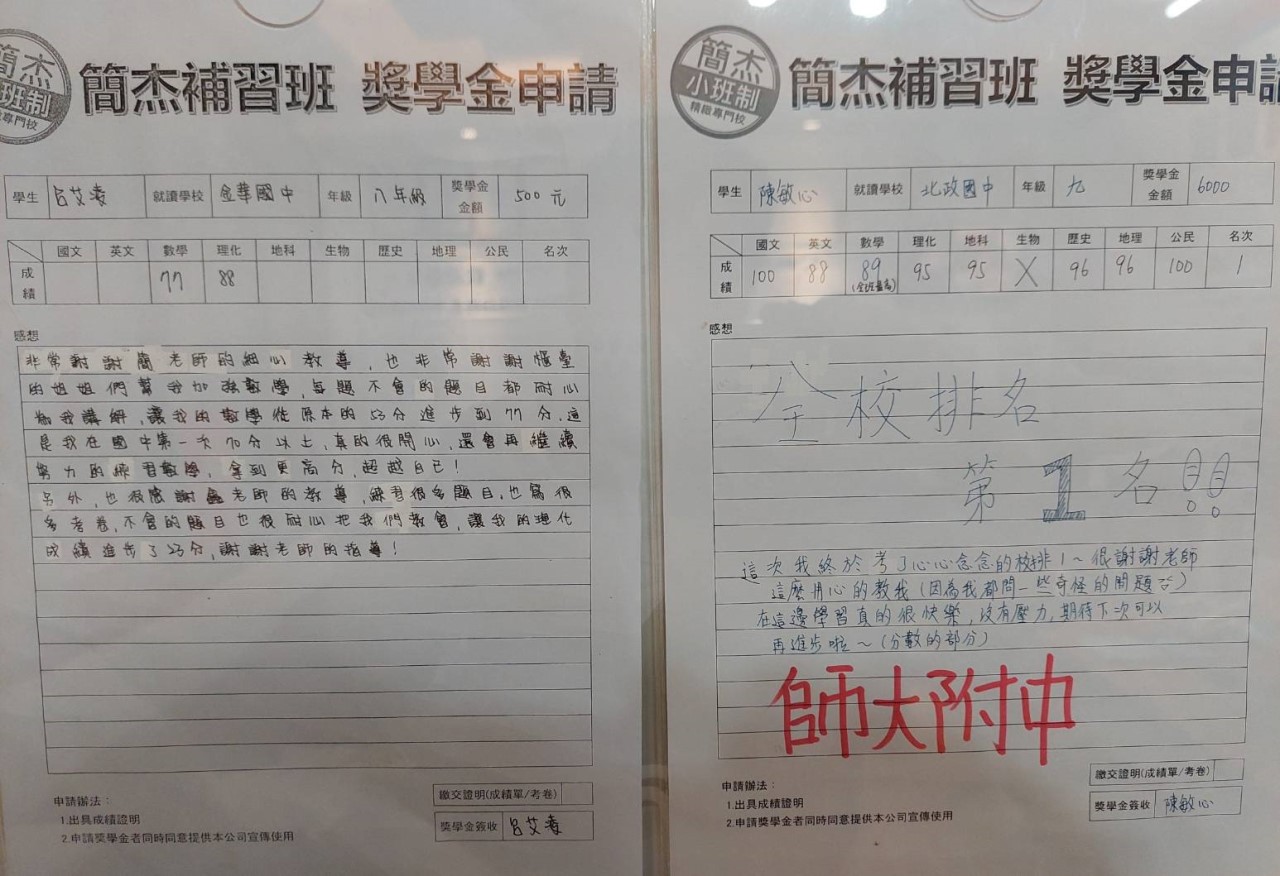 簡杰
小班制
精緻專門校
簡杰補習班 獎學金申請
學生 呂艾凌 就讀學校 金華國中 年級 八年級 獎學金金額 500元
國文 英文 數學 理化 地科 生物 歷史 地理 公民 名次
成績 77 88
感想
非常謝謝簡老師的細心教導,也非常謝謝櫃臺
的姐姐們幫我加強數學,每題不會的題目都耐心
為我講解,讓我的數學從原本的53分進步到77分,這
是我在國中第一次70分以上,真的很開心,還會再繼續
努力的練習數學,拿到更高分,超越自己!
另外,也很感謝老師的教導,練習很多題目,也寫很
多考卷,不會的題目也很耐心把我們教會,讓我的理化
成績進步了23分,謝謝老師的指導!
申請辦法:
1.出具成績證明
2.申請獎學金者同時同意提供本公司宣傳使用
繳交證明(成績單/考卷)
獎學金簽收 呂艾凌
簡杰
小班制
精緻專門校
簡杰補習班 獎學金申請
學生 陳敏心 就讀學校 北政國中 年級 九 獎學金金額 6000
國文 英文 數學 理化 地科 生物 歷史 地理 公民 名次
成績 100 88 89 95 95 X 96 96 100 1
(全班最高)
感想
全校排名
第1名!!
這次我終於考了心心念念的校排1~很謝謝老師
這麼用心的教我(因為我都問一些奇怪的問題)
在這邊學習真的很快樂,沒有壓力,期待下次可以
再進步啦~(分數的部分)
師大附中
申請辦法:
1.出具成績證明
2.申請獎學金者同時同意提供本公司宣傳使用
繳交證明(成績單/考卷)
獎學金簽收 陳敏心